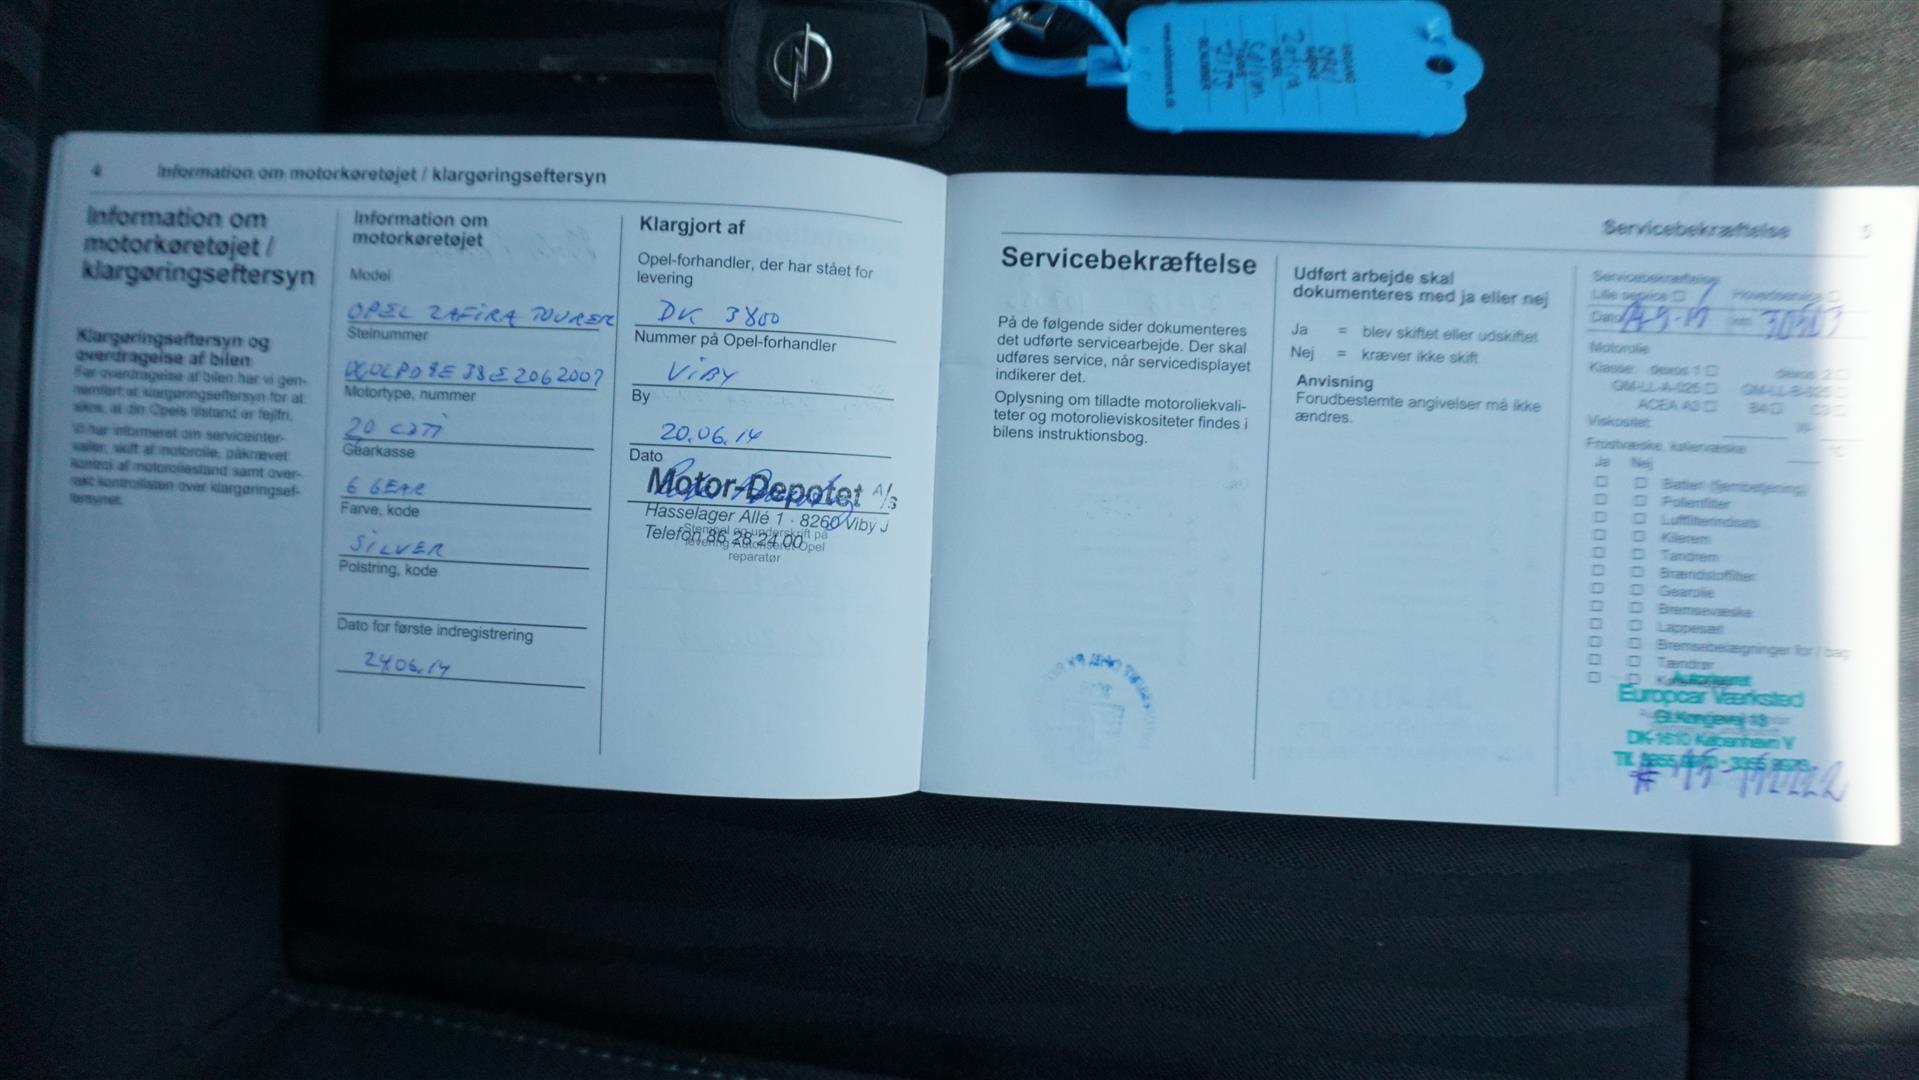 4 Information om motorkøretøjet / klargøringseftersyn
Information om
motorkøretøjet /
klargøringseftersyn
Klargøringseftersyn og
overdragelse af bilen
Før overdragelse af bilen har vi gen-
nemført et klargøringseftersyn for at
sikre, at din Opels tilstand er fejlfri.
Vi har informeret om serviceinter-
valler, skift af motorolie, påkrævet
kontrol af motoroliestand samt over-
rakt kontrollisten over klargøringsef-
tersynet.
Information om
motorkøretøjet
Model
OPEL ZAFIRA TOURER
Stelnummer
Motortype, nummer
20 CDTI
Gearkasse
6 GEAR
Farve, kode
SILVER
Polstring, kode
Dato for første indregistrering
24.06.14
Klargjort af
Opel-forhandler, der har stået for
levering
DK 3800
Nummer på Opel-forhandler
VIBY
By
20.06.14
Dato
Motor-Depotet A/S
Hasselager Allé 1 · 8260 Viby J
Telefon 86 28 24 00
Stempel og underskrift på
levering Autoriseret Opel
reparatør
Servicebekræftelse 5
Servicebekræftelse
På de følgende sider dokumenteres
det udførte servicearbejde. Der skal
udføres service, når servicedisplayet
indikerer det.
Oplysning om tilladte motoroliekvali-
teter og motorolieviskositeter findes i
bilens instruktionsbog.
Udført arbejde skal
dokumenteres med ja eller nej
Ja = blev skiftet eller udskiftet
Nej = kræver ikke skift
Anvisning
Forudbestemte angivelser må ikke
ændres.
Servicebekræftelse
Lille service Hovedservice
Dato km
Motorolie
Klasse: dexos 1 dexos 2
GM-LL-A-025 GM-LL-B-025
ACEA A3 B4 C3
Viskositet: W-
Frostvæske, kølervæske °C
Ja Nej
Batteri (fjernbetjening)
Pollenfilter
Luftfilterindsats
Kilerem
Tandrem
Brændstoffilter
Gearolie
Bremsevæske
Lappesæt
Bremsebelægninger for / bag
Tændrør
Autoriseret
Europcar Værksted
Gl.Kongevej 13
DK-1610 København V
www.
OPEL
Zafira
MODEL